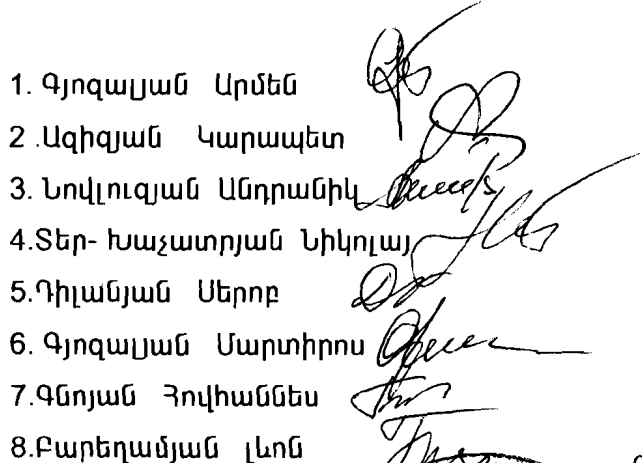 1. Գյոզալյան Արմեն
2 .Ազիզյան Կարապետ
3. Նովլուզյան Անդրանիկ
4.Տեր- Խաչատրյան Նիկոլայ
5.Դիլանյան Սերոբ
6. Գյոզալյան Մարտիրոս
7.Գնոյան Հովհաննես
8.Բարեղամյան լևոն